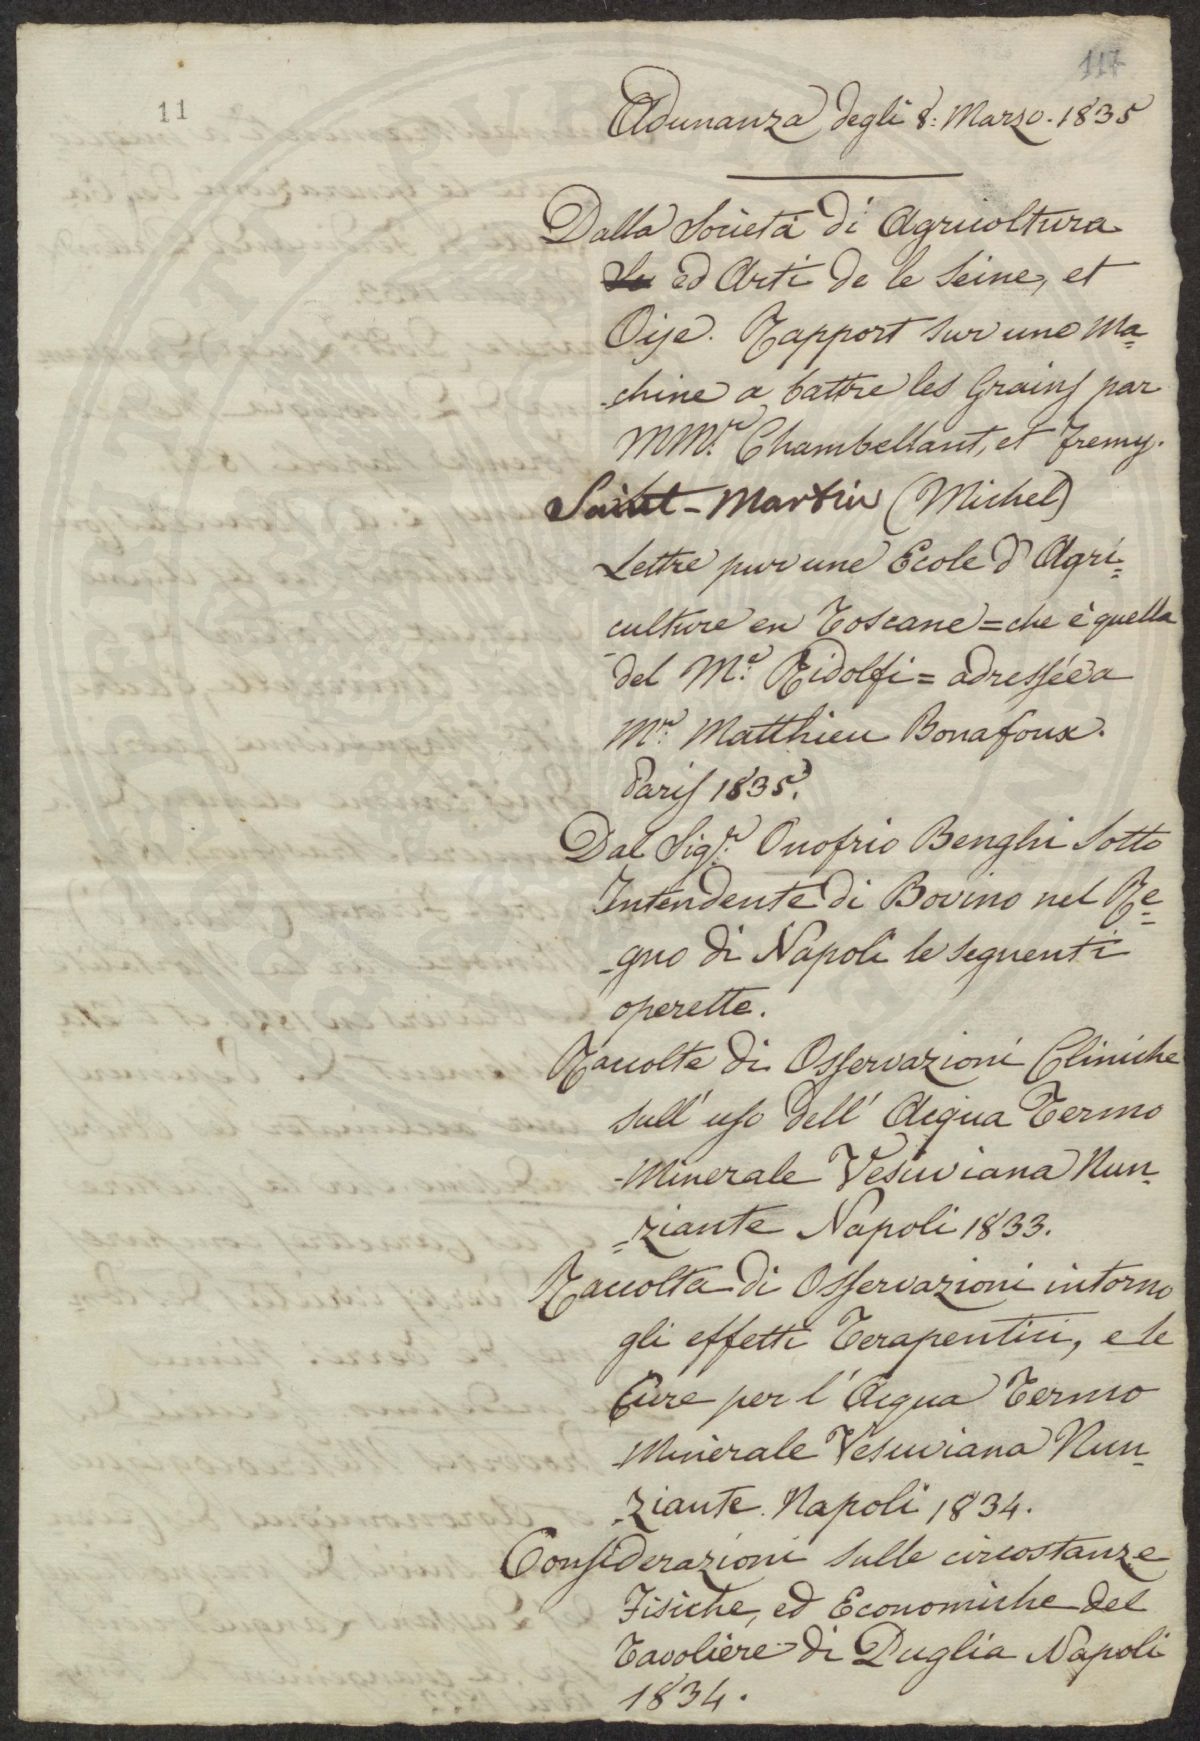 117
11
Adunanza degli 8: Marzo. 1835
Dalla Società di Agricoltura
ed Arti de le Seine, et
Oise. Rapport sur une Ma=
-chine a battre les Grains par
MM.r Chambellant, et Fremy.
Saint-Martin (Michel)
Lettre pur une Ecole d'Agri=
culture en Toscane = che è quella
del M.e Ridolfi = adressée a
M.r Matthieu Bonafoux.
Paris 1835.
Dal Sig.r Onofrio Benghi Sotto
Intendente di Bovino nel Re=
-gno di Napoli le seguenti
operette.
Raccolta di Osservazioni Cliniche
sull' uso dell' Acqua Termo
-Minerale Vesuviana Nun=
=ziante Napoli 1833.
Raccolta di Osservazioni intorno
gli effetti Terapeutici, e le
Cure per l' Acqua Termo
Minerale Vesuviana Nun=
-ziante. Napoli 1834.
Considerazioni sulle circostanze
Fisiche, ed Economiche del
Tavoliere di Puglia Napoli
1834.